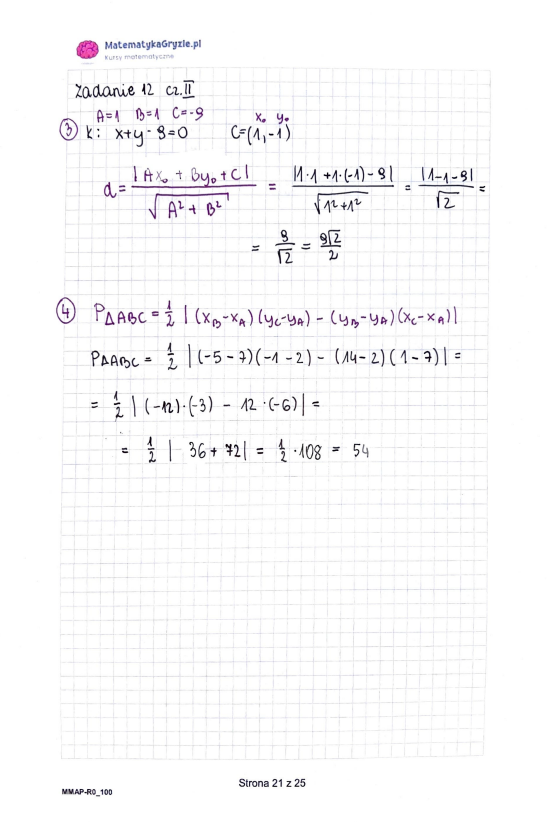 MatematykaGryzie.pl
Kursy matematyczne
Zadanie 12 cz.II
A=1 B=1 C=-9
③ k: x+y-9=0 C=(1,-1)
x₀ y₀
d= |Ax₀ + By₀ + C| / √(A² + B²) = |1·1 +1·(-1)-9| / √(1²+1²) = |1-1-9| / √2 =
= 9/√2 = 9√2/2
④ P△ABC = 1/2 | (x_B-x_A)(y_C-y_A) - (y_B-y_A)(x_C-x_A)|
P△ABC = 1/2 |(-5-7)(-1-2) - (14-2)(1-7)| =
= 1/2 | (-12)·(-3) - 12·(-6)| =
= 1/2 | 36 + 72| = 1/2 ·108 = 54
Strona 21 z 25
MMAP-R0_100